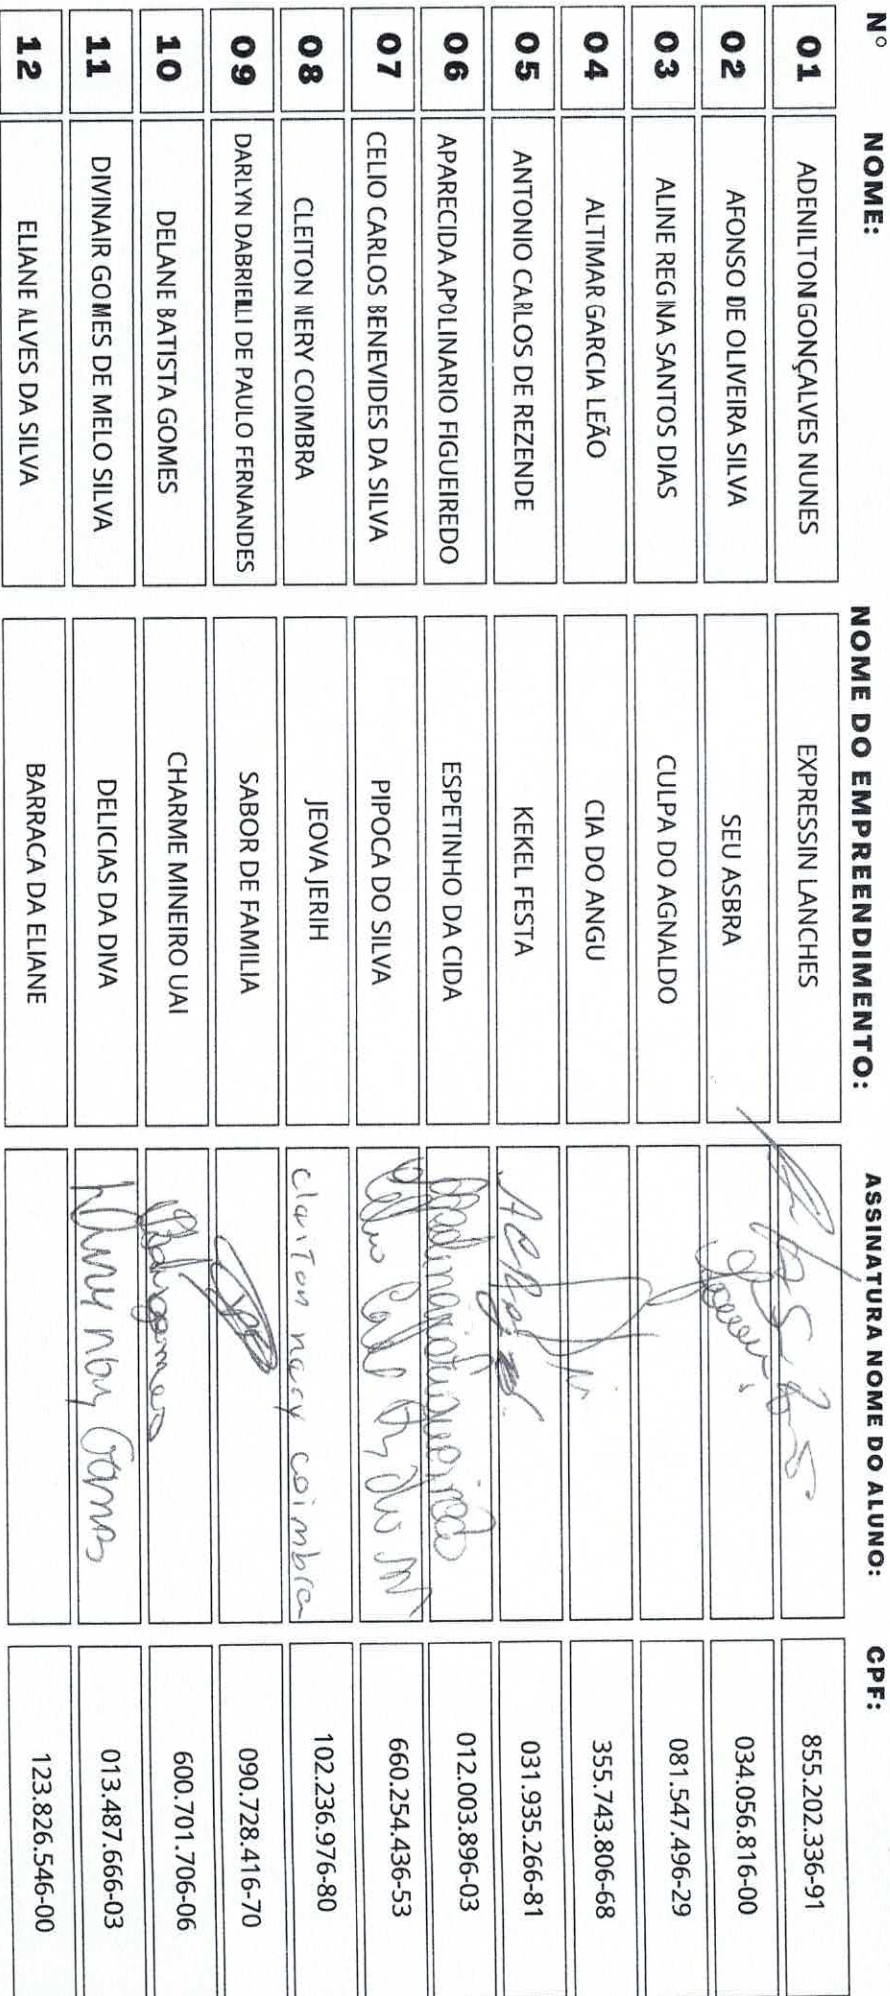 Nº NOME: NOME DO EMPREENDIMENTO: ASSINATURA NOME DO ALUNO: CPF:
01 ADENILTON GONÇALVES NUNES EXPRESSIN LANCHES 855.202.336-91
02 AFONSO DE OLIVEIRA SILVA SEU ASBRA 034.056.816-00
03 ALINE REGINA SANTOS DIAS CULPA DO AGNALDO 081.547.496-29
04 ALTIMAR GARCIA LEÃO CIA DO ANGU 355.743.806-68
05 ANTONIO CARLOS DE REZENDE KEKEL FESTA 031.935.266-81
06 APARECIDA APOLINARIO FIGUEIREDO ESPETINHO DA CIDA 012.003.896-03
07 CELIO CARLOS BENEVIDES DA SILVA PIPOCA DO SILVA 660.254.436-53
08 CLEITON NERY COIMBRA JEOVA JERIH clariton nery coimbra 102.236.976-80
09 DARLYN DABRIELLI DE PAULO FERNANDES SABOR DE FAMILIA 090.728.416-70
10 DELANE BATISTA GOMES CHARME MINEIRO UAI 600.701.706-06
11 DIVINAIR GOMES DE MELO SILVA DELICIAS DA DIVA 013.487.666-03
12 ELIANE ALVES DA SILVA BARRACA DA ELIANE 123.826.546-00